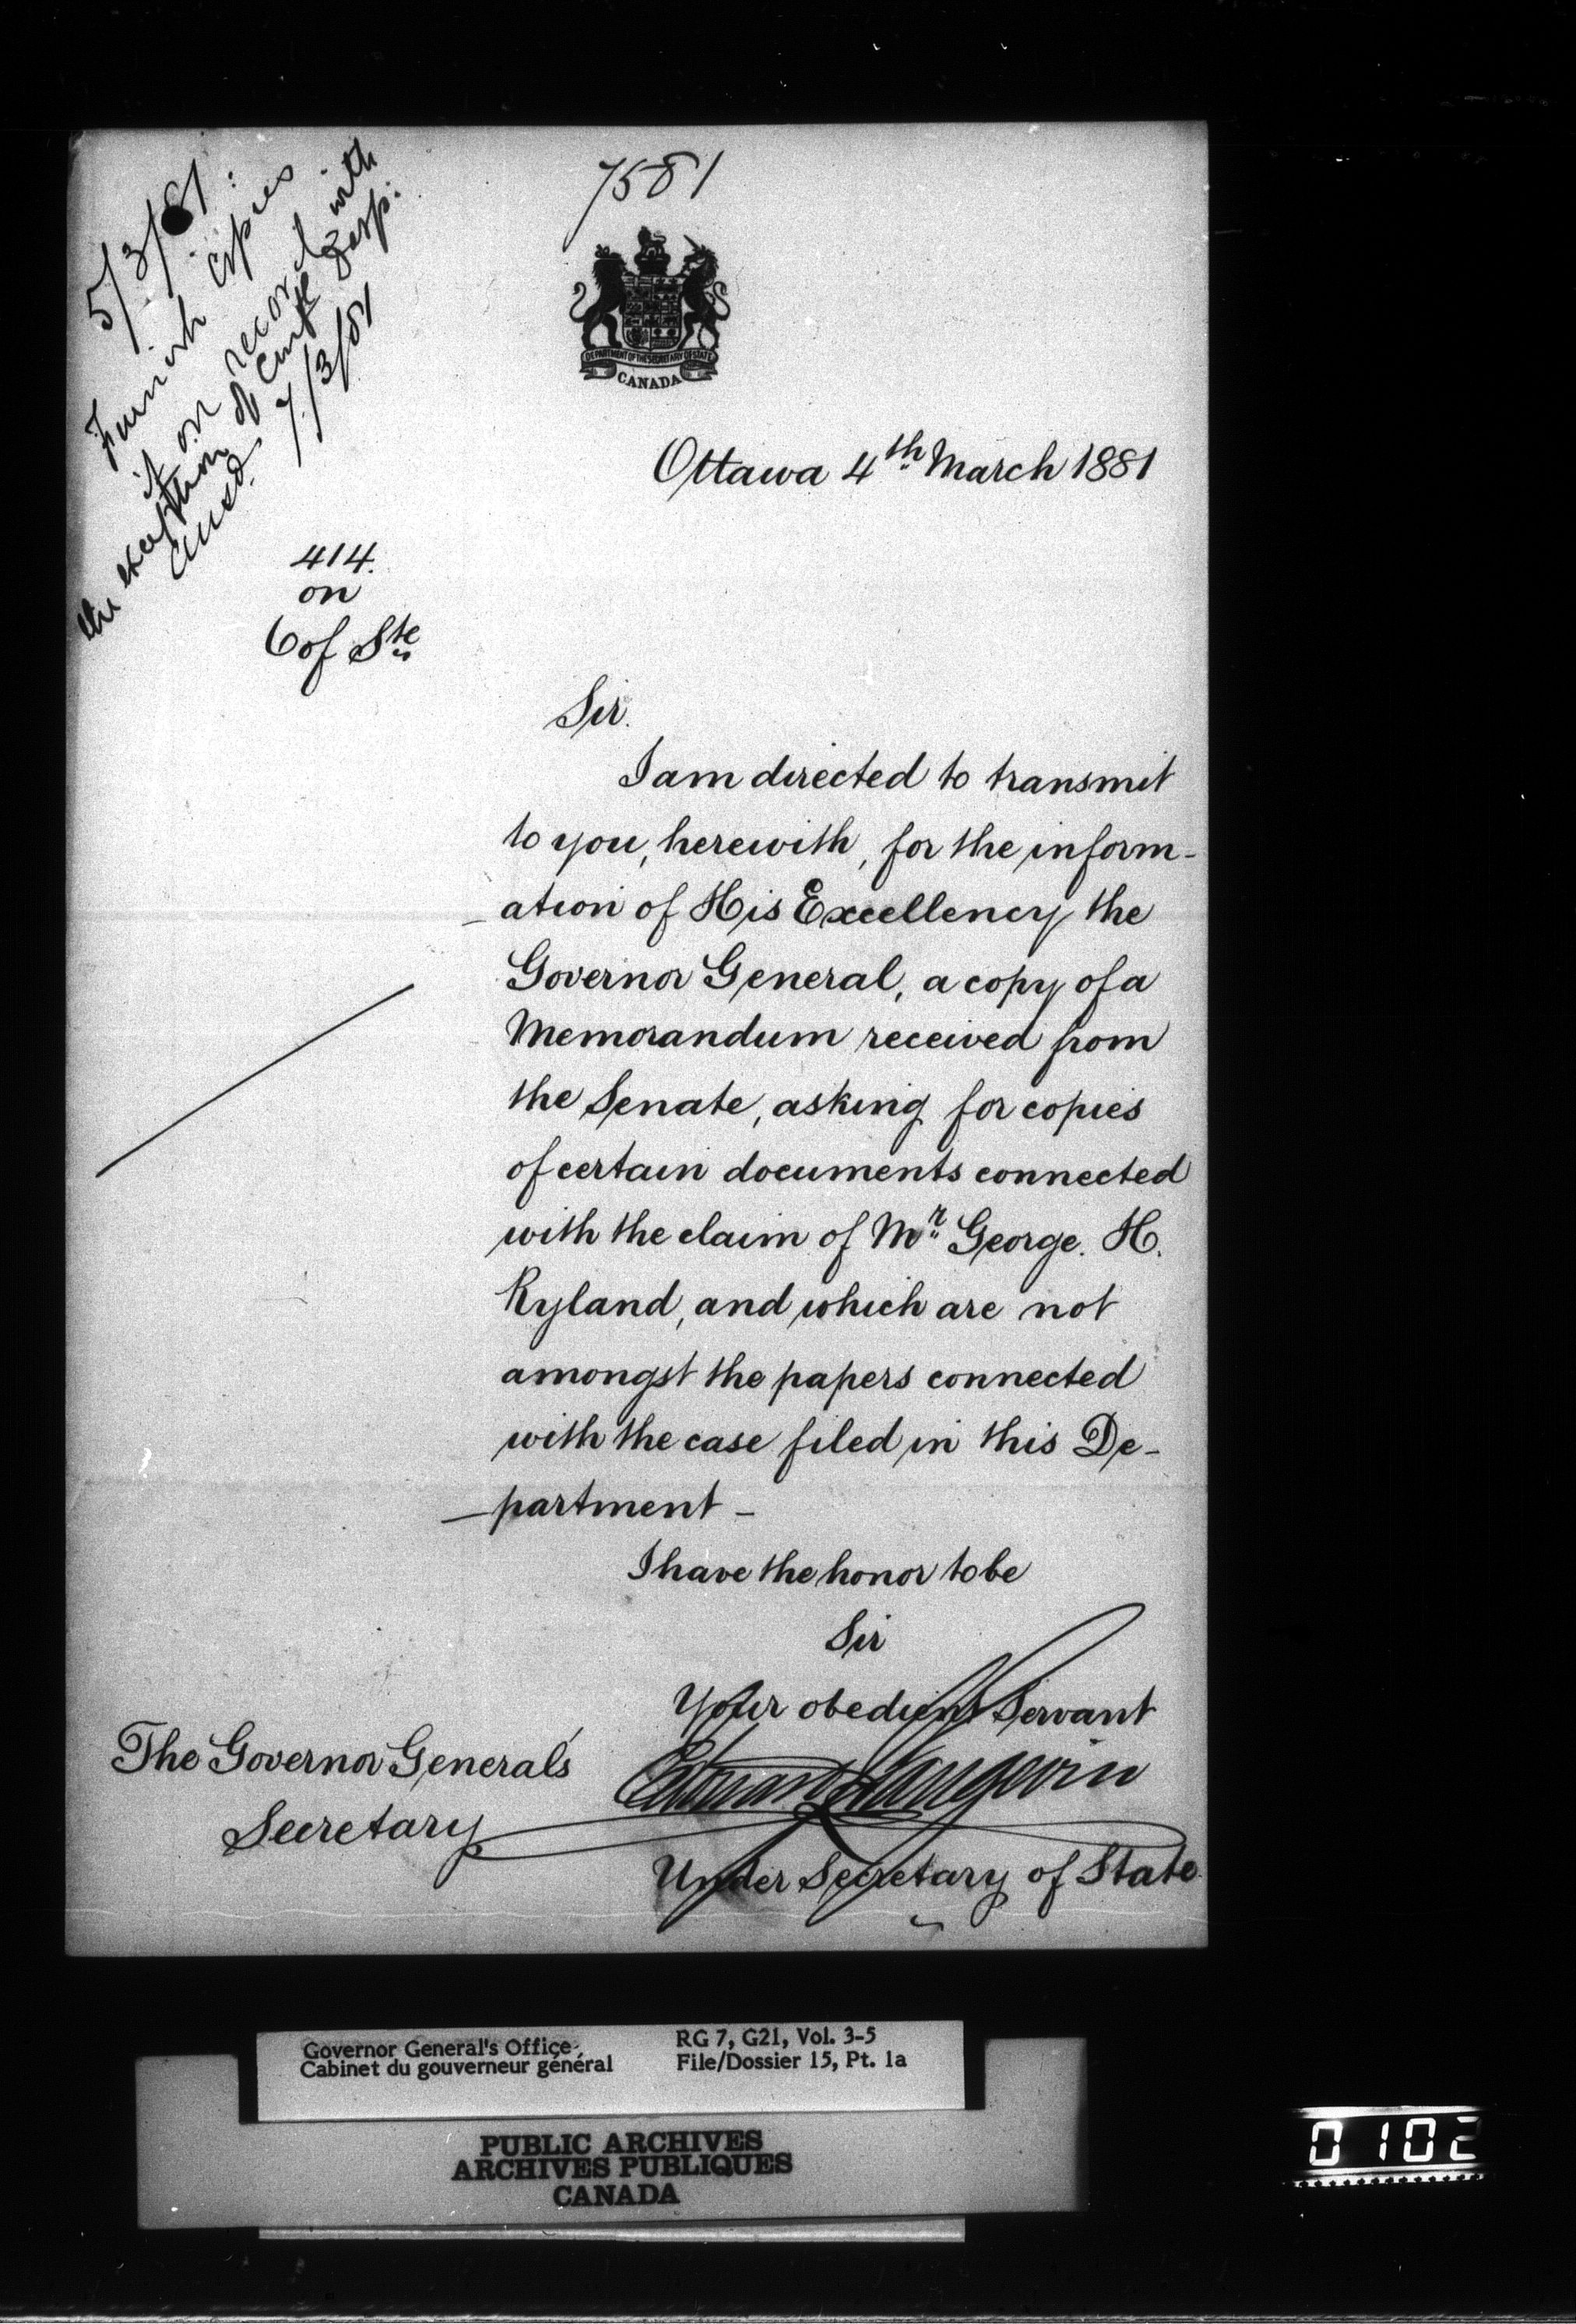 7581
5/3/81:
Furnish copies
if on record with
the exception of Conf'l Desp:
Ansd. 7/3/81
DEPARTMENT OF THE SECRETARY OF STATE
CANADA
Ottawa 4th March 1881
414.
on
6 of Ste
Sir.
I am directed to transmit
to you, herewith, for the inform-
ation of His Excellency the
Governor General, a copy of a
Memorandum received from
the Senate, asking for copies
of certain documents connected
with the claim of Mr. George. H.
Ryland, and which are not
amongst the papers connected
with the case filed in this De-
partment -
I have the honor to be
Sir
Your obedient Servant
Edouard J Langevin
Under Secretary of State
The Governor General's
Secretary
Governor General's Office
Cabinet du gouverneur général
RG 7, G21, Vol. 3-5
File/Dossier 15, Pt. 1a
PUBLIC ARCHIVES
ARCHIVES PUBLIQUES
CANADA
0102